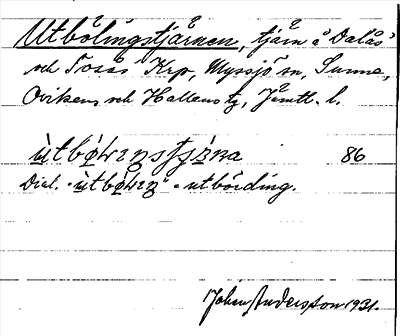 Utbölingstjärnen, tjärn å Dalås
och Tosås Krp, Myssjö sn, Sunne,
Ovikens och Hallens tg, Jämtl. l.
ùtbø̀lıŋstjä̀ṇa 86
Dial. ùtbø̀lıŋ = utbölding.
Johan Andersson 1931.